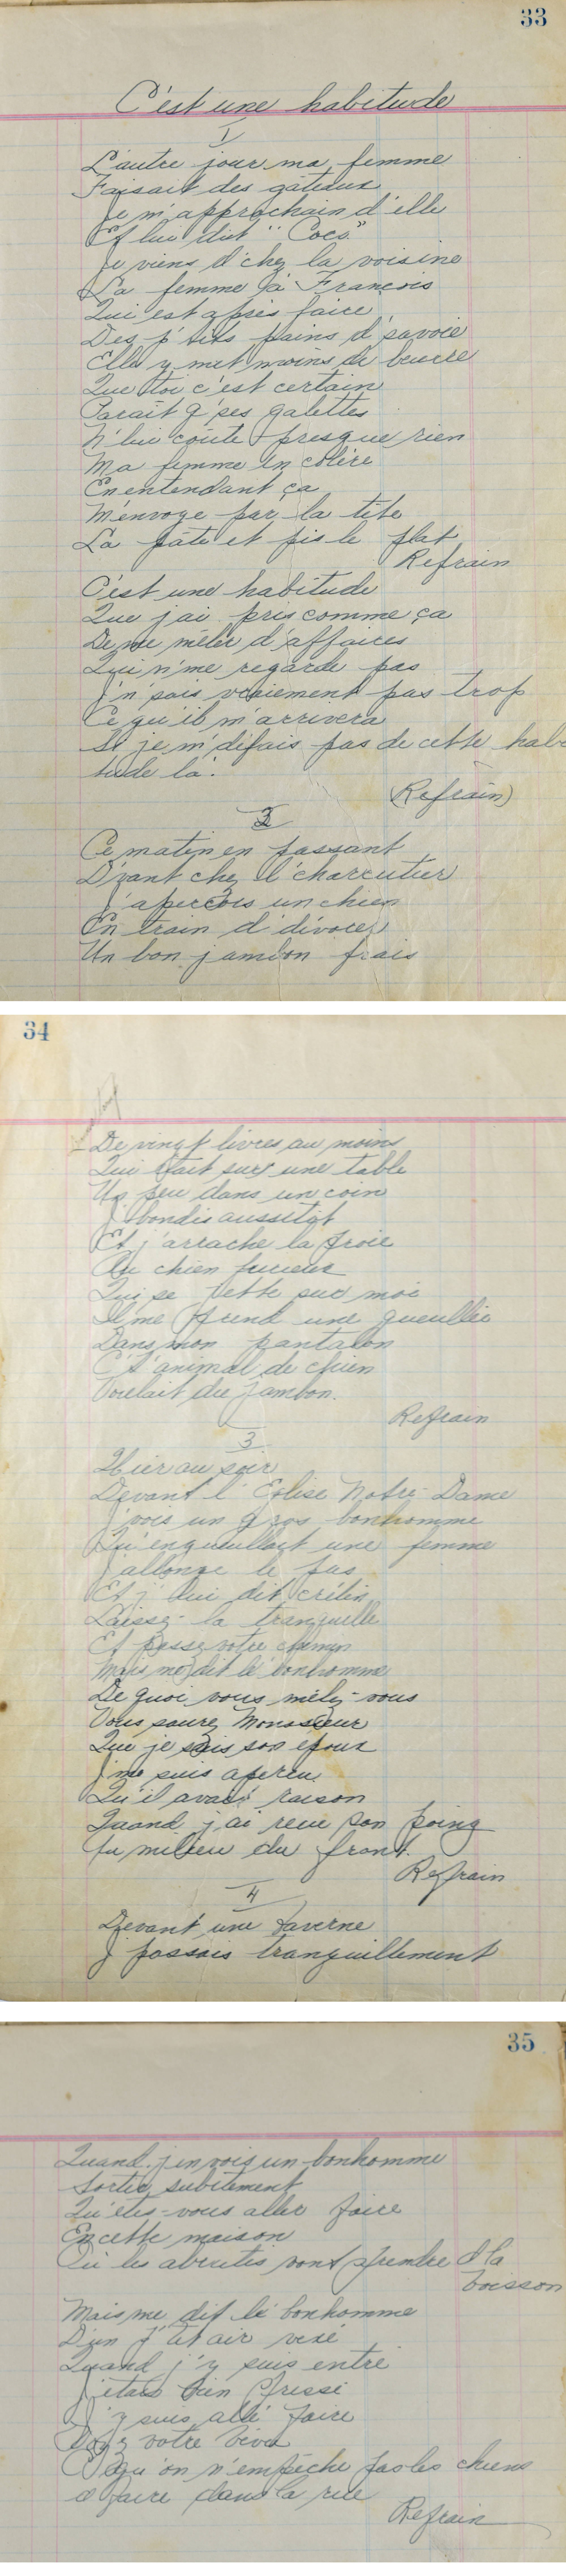 33
C'est une habitude
1
L'autre jour ma femme
Faisait des gâteaux
Je m'approchain d'elle
Et lui dit "Coco"
Je viens d'chez la voisine
La femme à François
Qui est après faire
Des p'tits pains d'savoie
Elle y met moins de beurre
Que toi c'est certain
Parait q'ses galettes
N'lui coûte presque rien
Ma femme en colère
En entendant ça
M'envoye par la tête
La pâte et pis le plat
Refrain
C'est une habitude
Que j'ai pris comme ça
De me mêler d'affaires
Qui n'me regarde pas
J'n'sais vraiement pas trop
Ce qu'il m'arrivera
Si je m'défais pas de cette habi
tude là.
(Refrain)
2
Ce matin en passant
D'vant chez l'charcutier
J'apercois un chien
En train d'dévorer
Un bon jambon frais
34
De vingt livres au moins
Qui était sur une table
Un peu dans un coin
J'bondis aussitôt
Et j'arrache la proie
Au chien furieux
Qui se jette sur moi
Il me prend une gueullée
Dans mon pantalon
C't'animal de chien
Voulait du jambon.
Refrain
3
Hier au soir
Devant l'Eglise Notre-Dame
J'vois un gros bonhomme
Qu'engueullait une femme
J'allonge le pas
Et j'lui dit crétin
Laissez-la tranquille
Et passez votre chemin
Mais me dit le bonhomme
De quoi vous mêlez-vous
Vous saurez Monssieur
Que je suis son époux
J'me suis aperçu
Qu'il avait raison
Quand j'ai reçu son poing
Au milieu du front.
Refrain
4
Devant une taverne
J'passais tranquillement
35
Quand j'en vois un bonhomme
Sortir subitement
Qu'êtes-vous aller faire
En cette maison
Où les abrutis vont prendre d'la
boisson
Mais me dit le bonhomme
D'un p'tit air vexé
Quand j'y suis entré
J'étais bien pressé
J'y suis allé faire
votre
C'qu'on n'empêche pas les chiens
d'faire dans la rue
Refrain